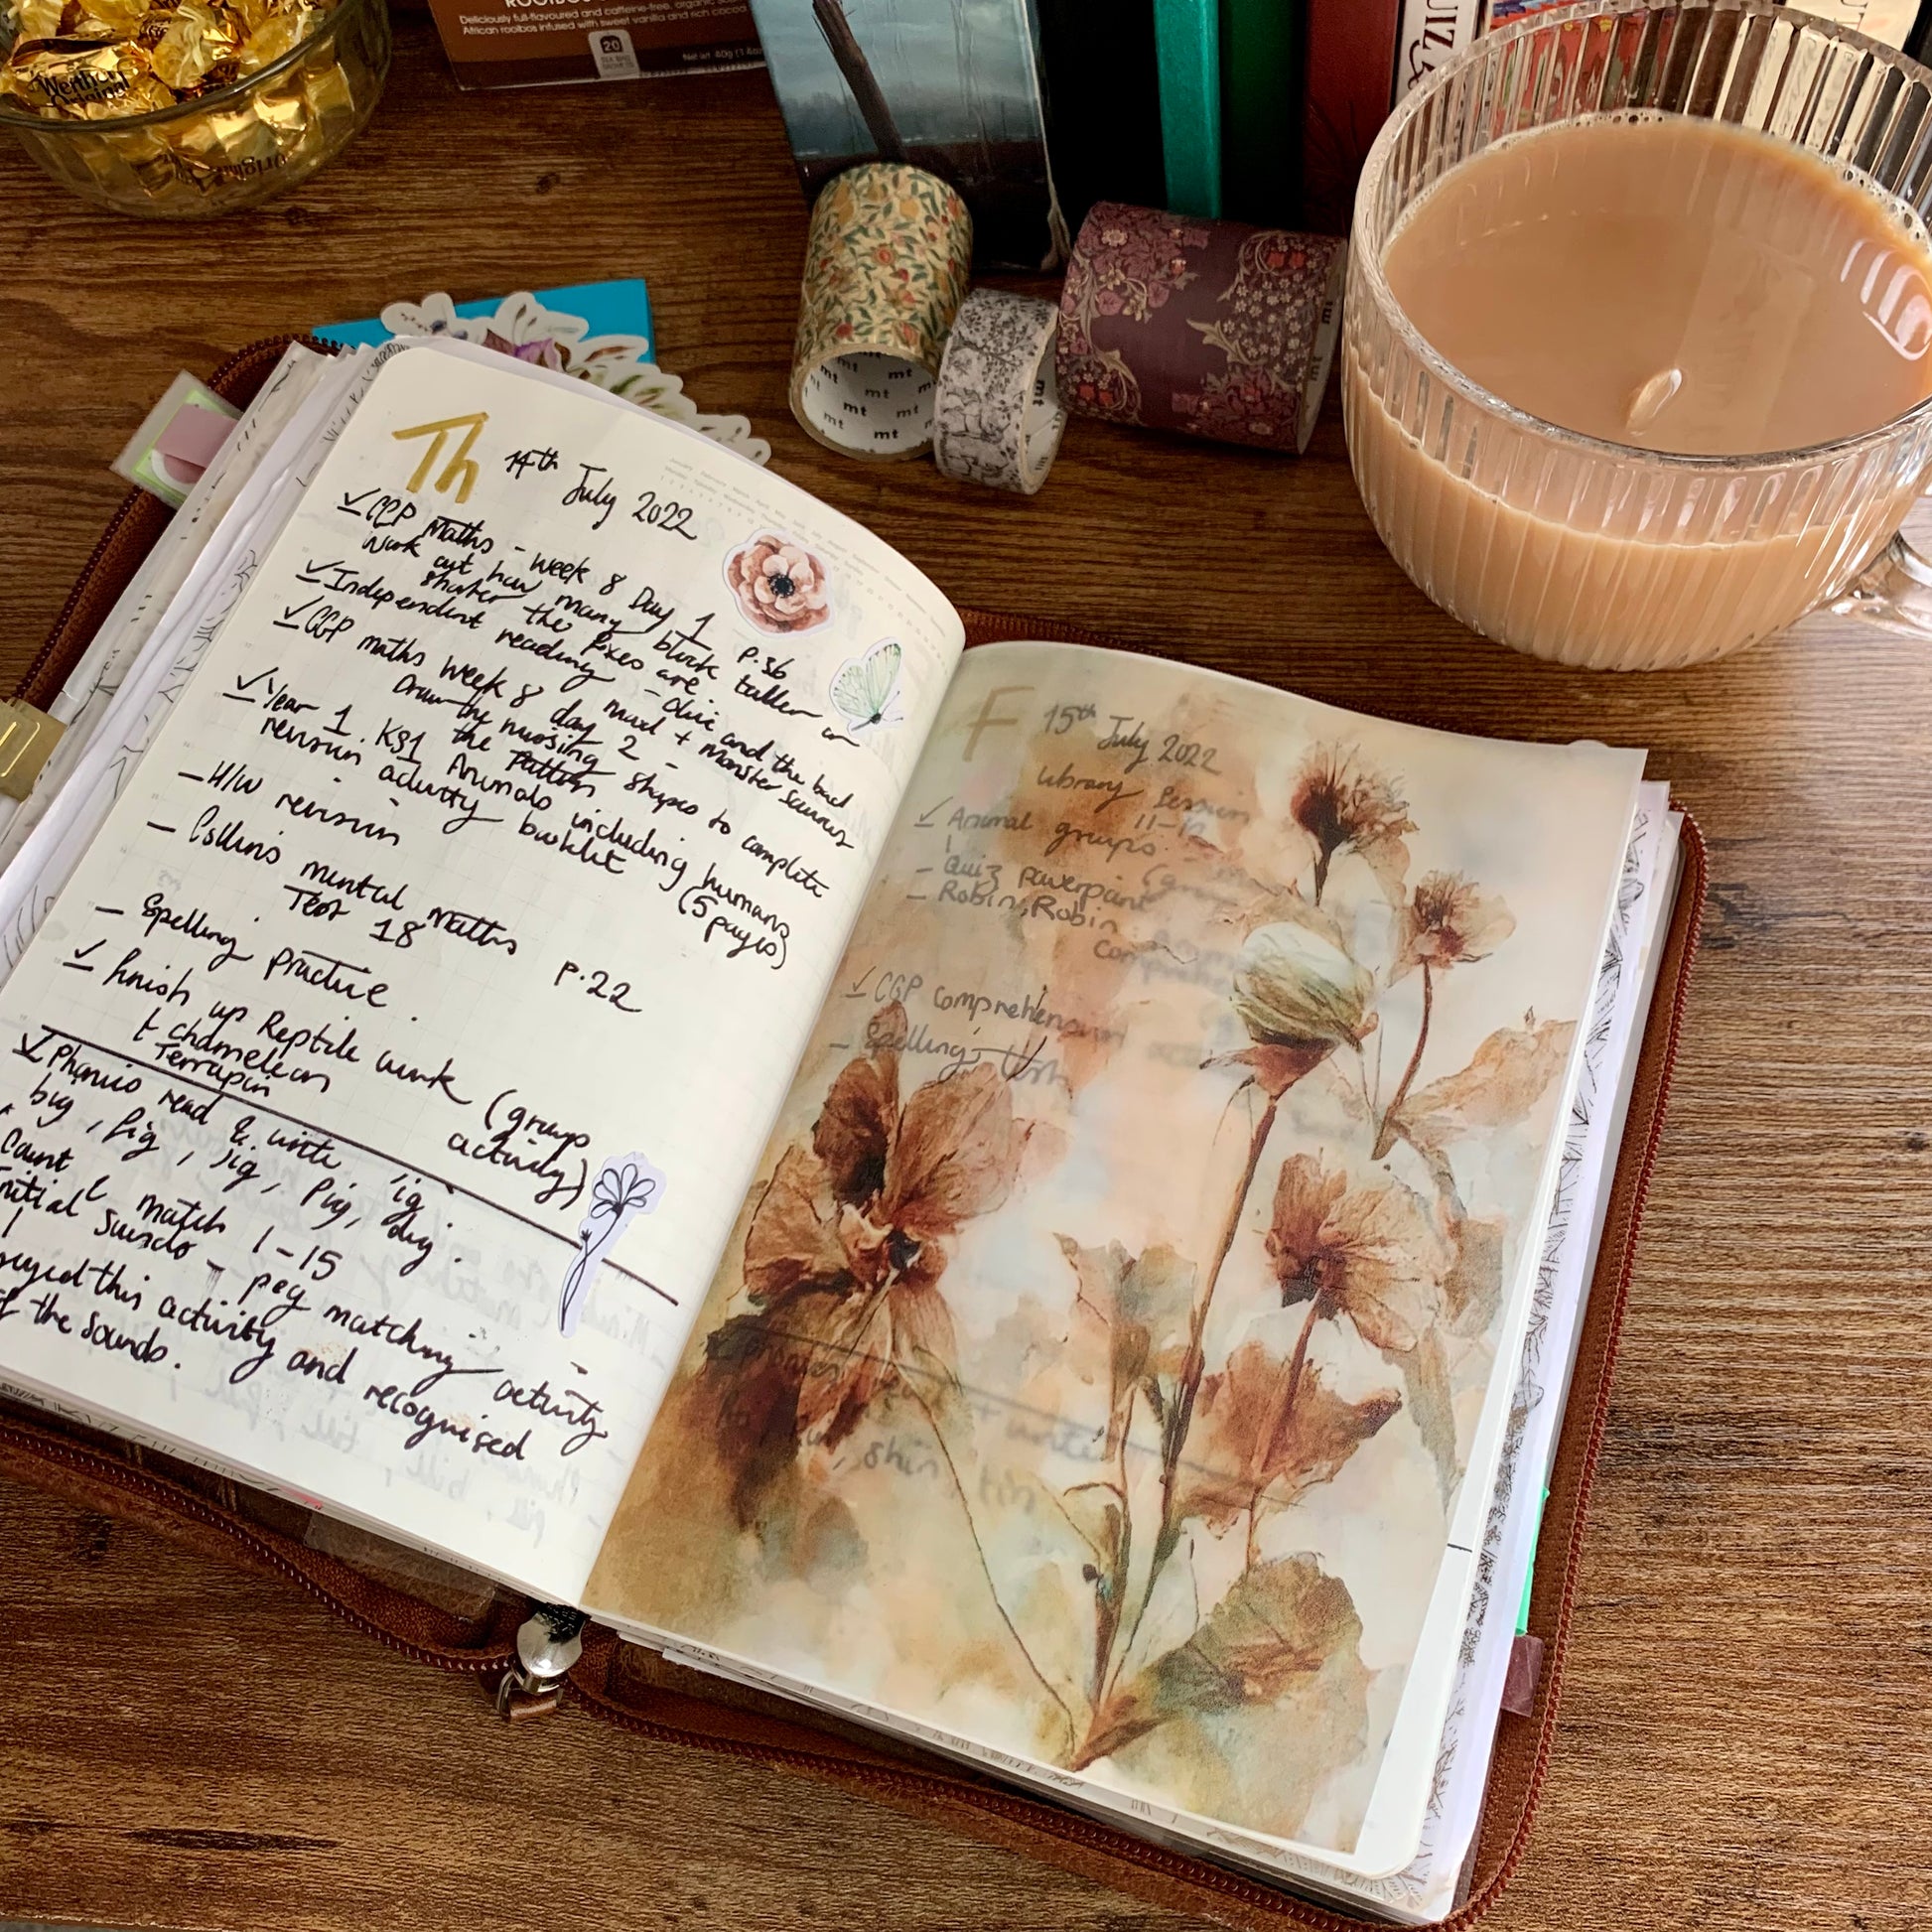 Werther's
Original
ROOIBOS
Deliciously full-flavoured and caffeine-free, organic
African rooibos infused with sweet vanilla and rich cocoa
20
Net wt. 40g
QUIZ
mt
mt
mt
mt
mt
Th 14th July 2022
✓ CGP Maths - Week 8 Day 1 p.36
Work out how many block taller or
shorter the foxes are
✓ Independent reading - Clive and the bad
Maxl + Monster Saurus
✓ CGP maths week 8 day 2 -
Draw the missing shapes to complete
the Pattern
✓ Year 1 KS1 Animals including humans
revision activity booklet (5
pages)
- H/W revision
- Collins mental maths
Test 18 p.22
- Spelling practice.
✓ finish up Reptile work (group
activity)
t chameleon
Terrapin
✓ Phonics read & write 'ig'
big, fig, jig, pig, dig.
Count & match 1-15
initial sounds - peg matching activity -
this activity and recognised
of the sounds.
F 15th July 2022
Library Session
11-12
✓ Animal groups
- Quiz powerpoint
- Robin, Robin
✓ CGP comprehension
- Spelling Test
write
shin tin